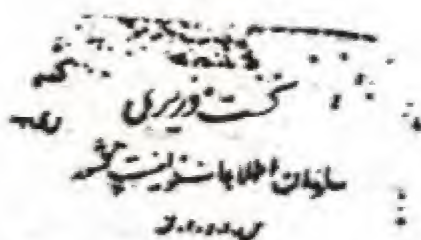 نخست وزیری
سازمان اطلاعات و امنیت کشور
س.ا.و.ا.ک